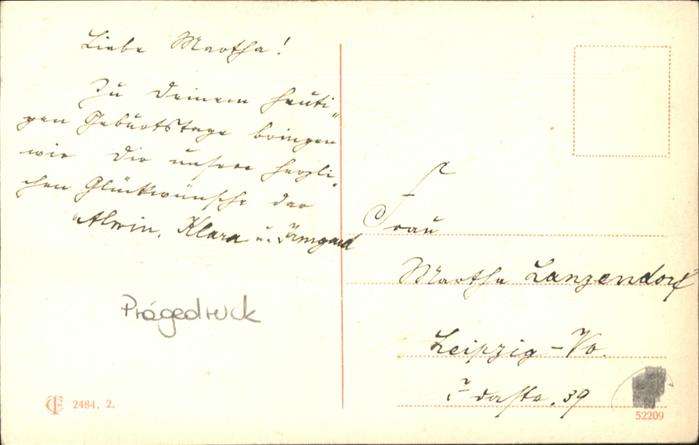 Liebe Martha!
Zu Deinem heuti-
gen Geburtstage bringen
wir Dir unsere herzli-
chen Glückwünsche dar
Alwin, Klara u. Irmgard
Frau
Martha Langendorf
Leipzig-Vo.
Idastr. 39
Prägedruck
2484, 2.
52209